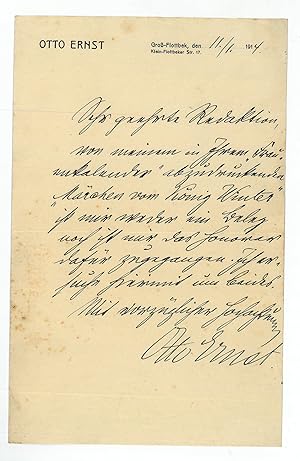 OTTO ERNST
Groß-Flottbek, den 11./1. 1914
Klein-Flottbeker Str. 17.
Sehr geehrte Redaktion,
von meinem in Ihrem „Frau-
enkalender“ abzudruckenden
Märchen vom „König Winter“
ist mir weder ein Beleg
noch ist mir das Honorar
dafür zugegangen. Ich er-
suche hiermit um beides.
Mit vorzüglicher Hochachtung
Otto Ernst.